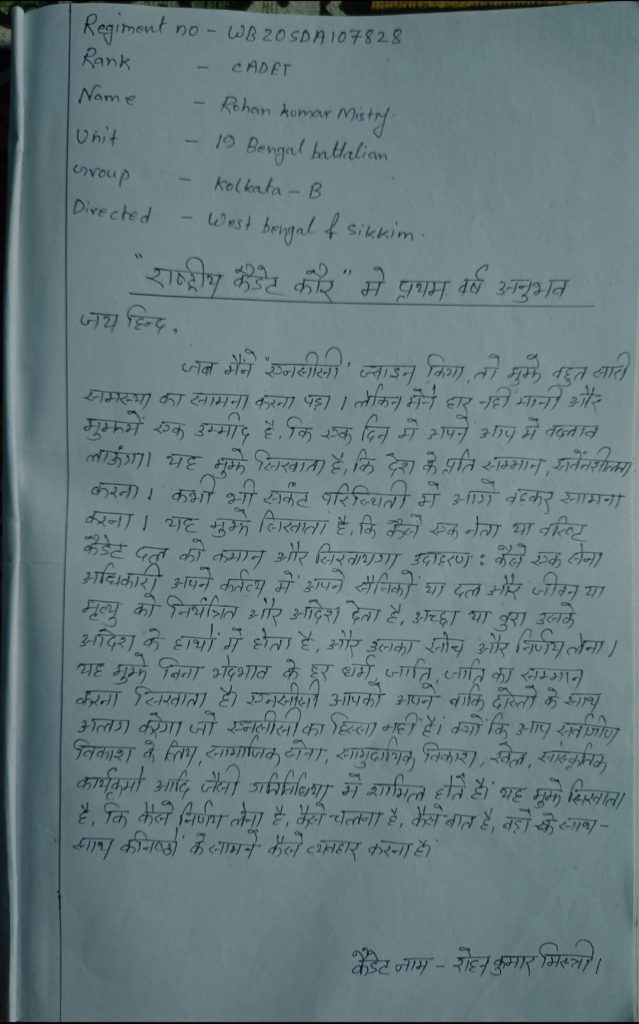 Regiment no - WB20SDA107828
Rank - CADET
Name - Rohan Kumar Mistry.
Unit - 19 Bengal battalian
Group - Kolkata - B
Directed - West bengal & Sikkim.
"राष्ट्रीय कैडेट कौर" में प्रथम वर्ष अनुभव
जय हिन्द,
जब मैंने 'एनसीसी' ज्वाइन किया, तो मुझे बहुत सारी
समस्या का सामना करना पड़ा। लेकिन मैंने हार नहीं मानी और
मुझमें एक उम्मीद है, कि एक दिन मे अपने आप मे बदलाव
लाऊंगा। यह मुझे सिखाता है, कि देश के प्रति सम्मान, सवेंनशीलता
करना। कभी भी संकट परिस्थिती में आगे बढकर सामना
करना। यह मुझे सिखाता है, कि कैसे एक नेता या वरिष्ट
कैडेट दल को कमान और सिखायगा उदाहरण: कैसे एक सेना
अधिकारी अपने कर्तव्य में अपने सैनिकों या दल और जीवन या
मृत्यु को नियंत्रित और आदेश देता है, अच्छा या बुरा उसके
आदेश के हाथों में होता है, और उसका सोच और निर्णय लेना।
यह मुझे बिना भेदभाव के हर धर्म, जाति, जाति का सम्मान
करना सिखाता है। एनसीसी आपको अपने बाकि दोस्तो के साथ
अलग करेगा जो एनसीसी का हिस्सा नहीं है। क्यों कि आप सर्वांगीण
विकाश के लिय, सामाजिक सेवा, सामुदायिक विकाश, खेल, सांस्कृतिक
कार्यक्रमों आदि जैसी गतिविधियां में शामिल होते हैं। यह मुझे सिखाता
है, कि कैसे निर्णय लेना है, कैसे चलना है, कैसे बात है, बड़ो के साथ -
साथ कनिष्ठों के सामने कैसे व्यवहार करना है।
कैडेट नाम - रोहन कुमार मिस्त्री।